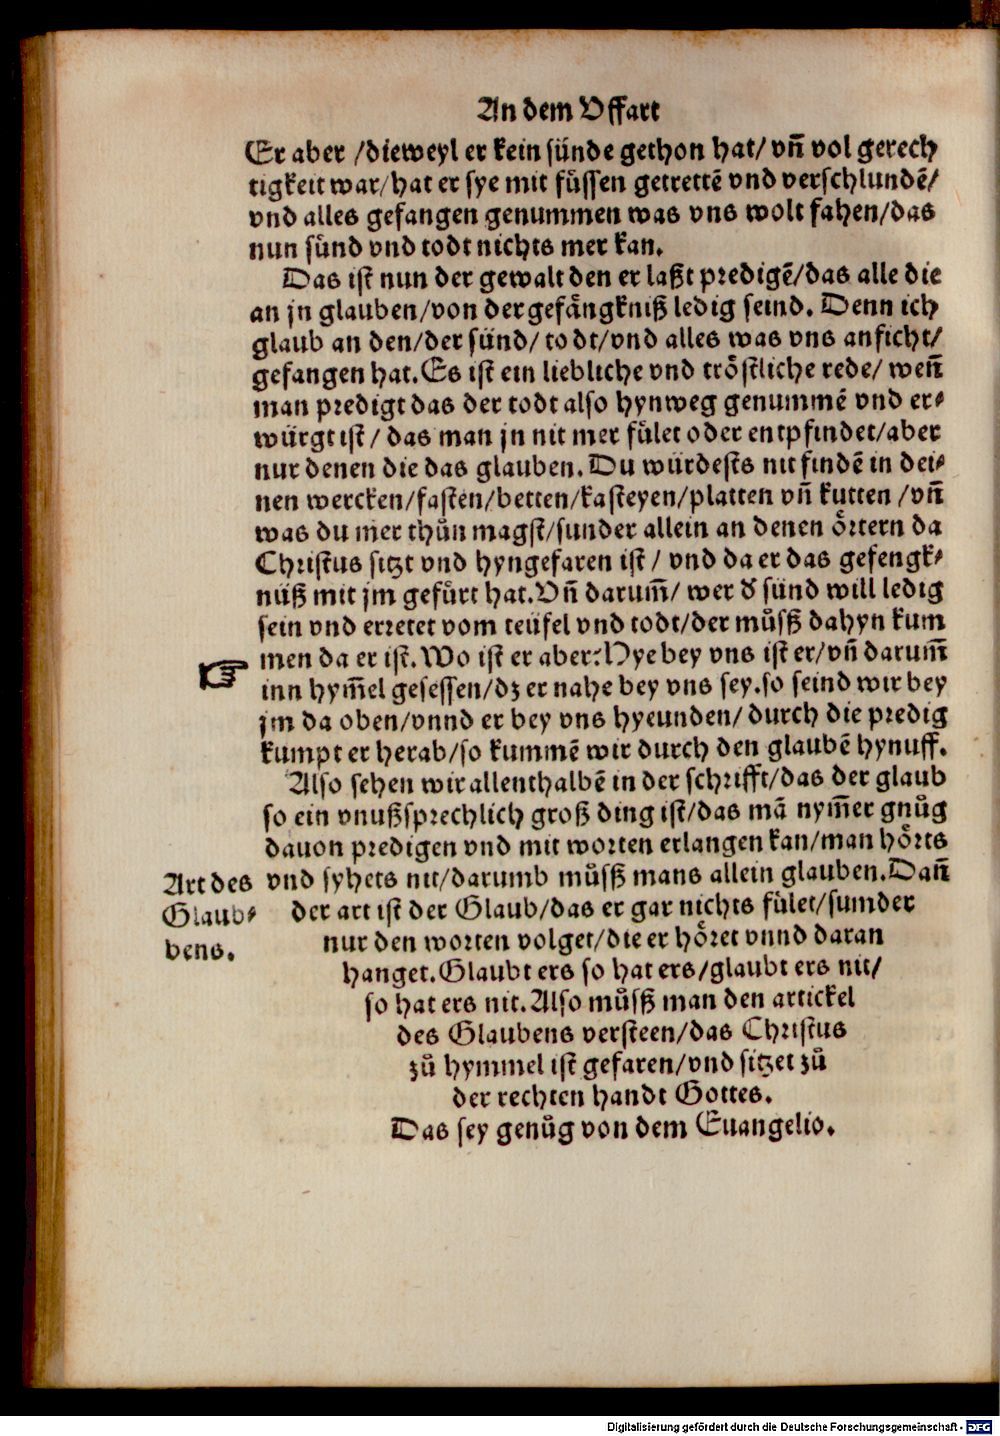 An dem Vffart
Er aber /dieweyl er kein sünde gethon hat/ vn̄ vol gerech
tigkeit war/hat er sye mit füssen getrettē vnd verschlundē/
vnd alles gefangen genummen was vns wolt fahen/das
nun sünd vnd todt nichts mer kan.
Das ist nun der gewalt den er laßt predigē/das alle die
an jn glauben/von der gefängkniß ledig seind. Denn ich
glaub an den/der sünd/ todt/vnd alles was vns anficht/
gefangen hat. Es ist ein liebliche vnd tröstliche rede/ wen̄
man predigt das der todt also hynweg genummē vnd er⸗
würgt ist / das man jn nit mer fület oder entpfindet/aber
nur denen die das glauben. Du würdests nit findē in dei⸗
nen wercken/fasten/betten/kasteyen/platten vn̄ kutten /vn̄
was du mer thůn magst/sunder allein an denen örtern da
Christus sitzt vnd hyngefaren ist / vnd da er das gefengk⸗
nüß mit jm gefürt hat. Vn̄ darum̄/ wer d̕ sünd will ledig
sein vnd erretet vom teüfel vnd todt/der můsß dahyn kum
men da er ist. Wo ist er aber: Hye bey vns ist er/vn̄ darum̄
inn hym̄el gesessen/dz er nahe bey vns sey. so seind wir bey
jm da oben/vnnd er bey vns hyeunden/ durch die predig
kumpt er herab/so kummē wir durch den glaubē hynuff.
Also sehen wir allenthalbē in der schrifft/das der glaub
so ein vnußsprechlich groß ding ist/das mā nym̄er gnůg
dauon predigen vnd mit worten erlangen kan/man hörts
vnd syhets nit/darumb můsß mans allein glauben. Dan̄
Art des
Glaub⸗
bens.
der art ist der Glaub/das er gar nichts fület/sumder
nur den worten volget/die er höret vnnd daran
hanget. Glaubt ers so hat ers/glaubt ers nit/
so hat ers nit. Also můsß man den artickel
des Glaubens versteen/das Christus
zů hymmel ist gefaren/vnd sitzet zů
der rechten handt Gottes.
Das sey genůg von dem Euangelio.
Digitalisierung gefördert durch die Deutsche Forschungsgemeinschaft - DFG